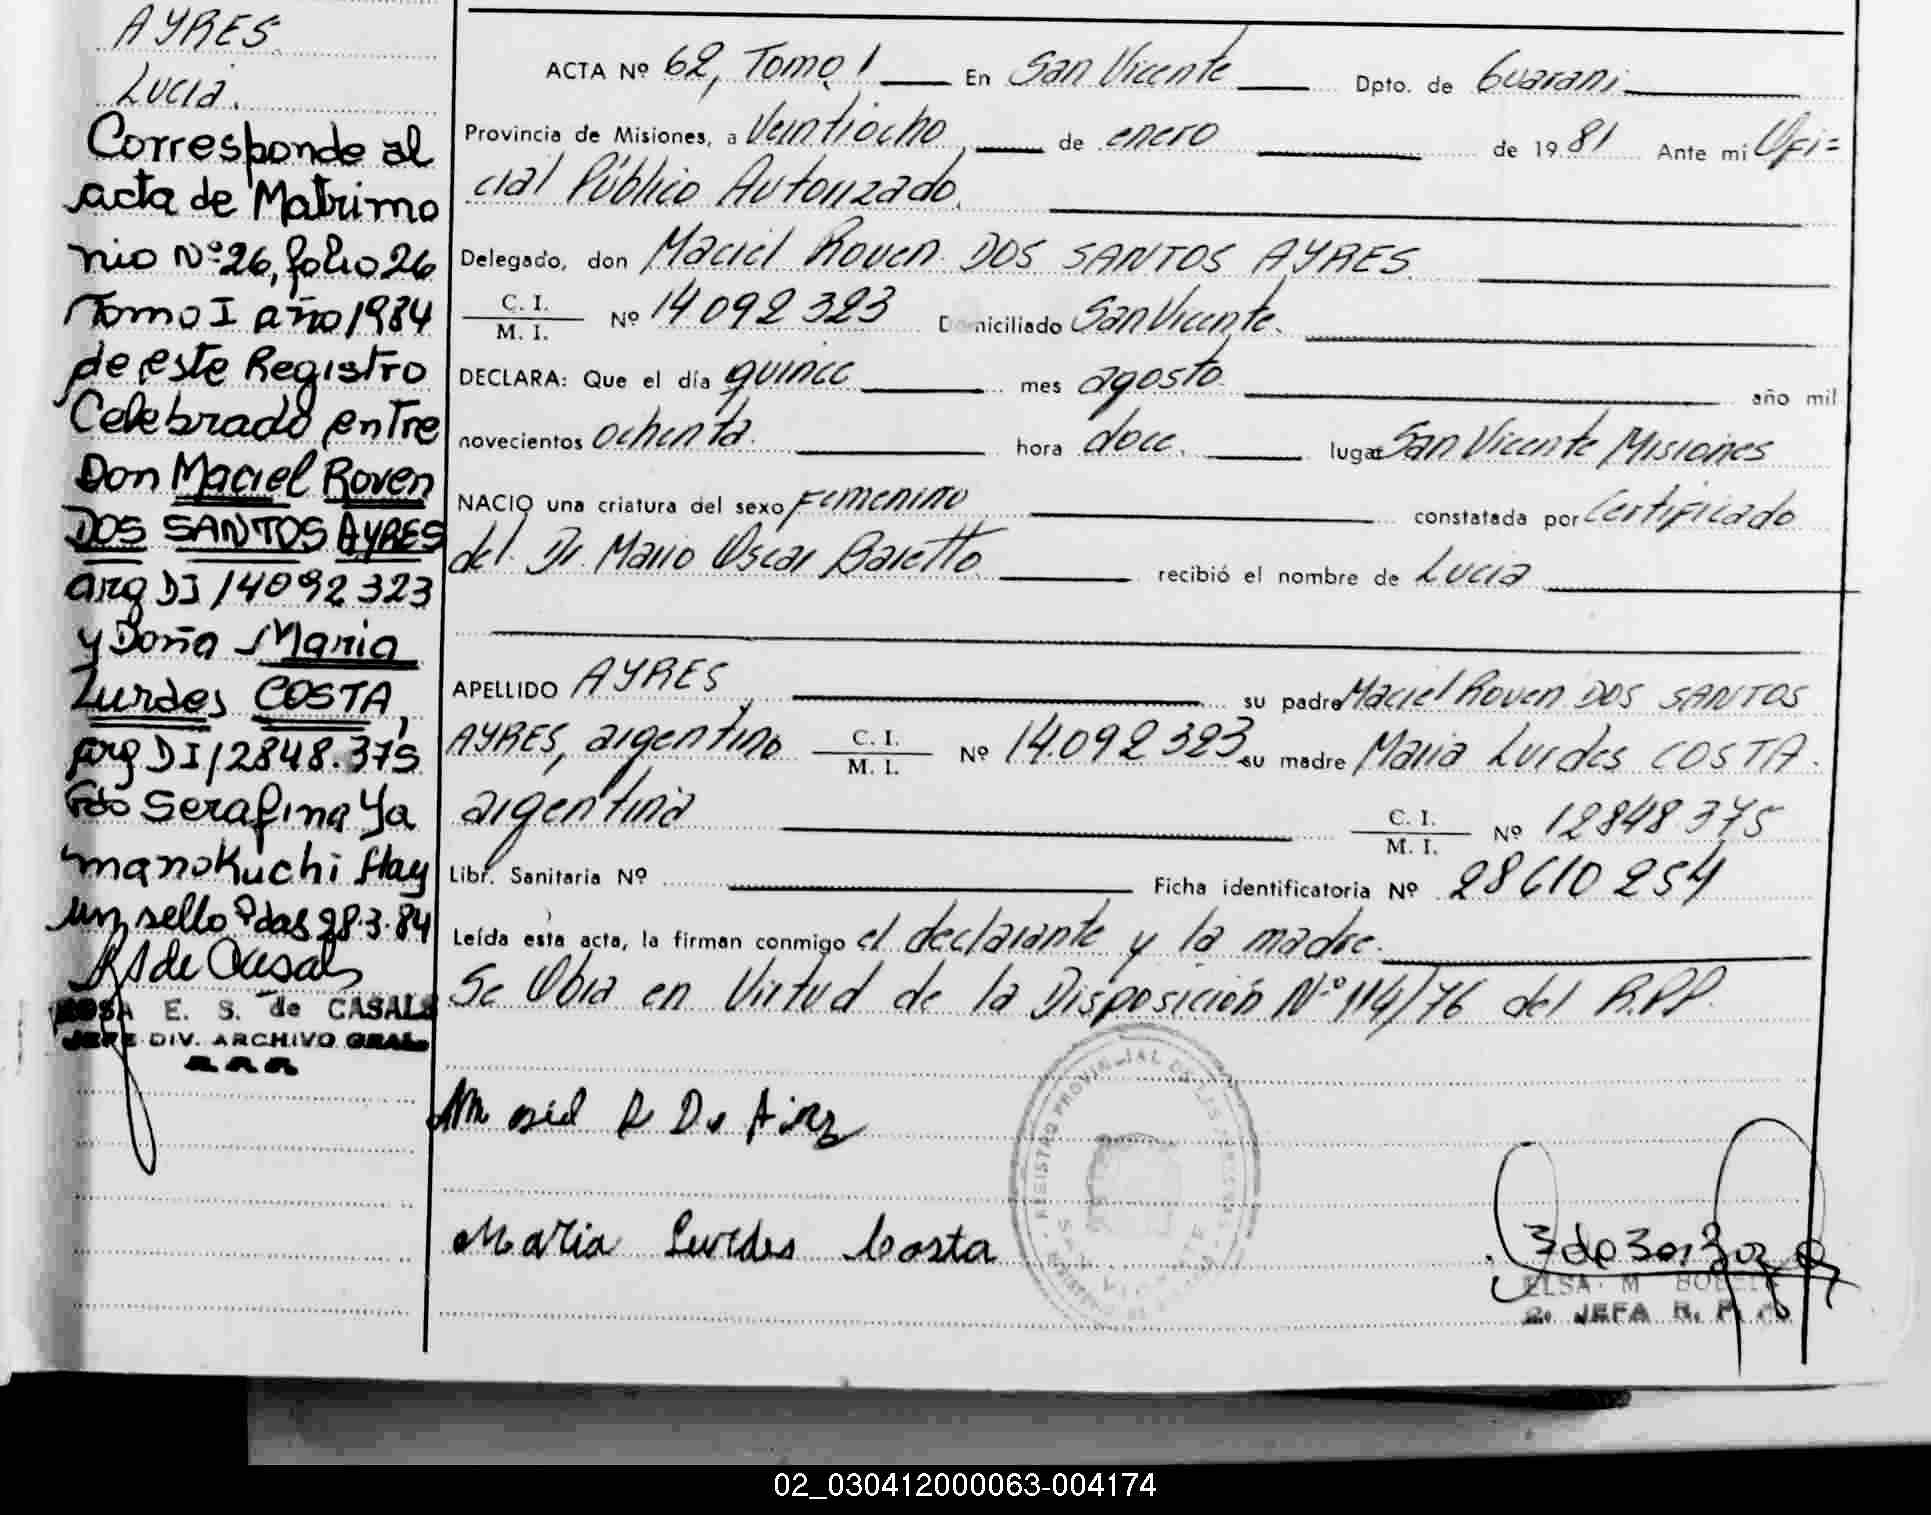 AYRES
Lucia.
Corresponde al
acta de Matrimo
nio Nº 26, folio 26
Tomo I año 1984
de este Registro
Celebrado entre
Don Maciel Roven
DOS SANTOS AYRES
arg DI 14092323
y Doña Maria
Lurdes COSTA,
arg DI 12848.375
Fdo Serafina Ya
manokuchi Hay
un sello Pdas 28.3.84
RS de Casals
ROSA E. S. de CASALS
JEFE DIV. ARCHIVO GRAL.
ACTA Nº 62, Tomo 1 En San Vicente Dpto. de Guarani
Provincia de Misiones, a Veintiocho de enero de 1981 Ante mi Ofi=
cial Público Autorizado.
Delegado, don Maciel Roven DOS SANTOS AYRES
C. I.
M. I. Nº 14.092 323 Domiciliado San Vicente.
DECLARA: Que el día quince mes agosto año mil
novecientos ochenta. hora doce. lugar San Vicente Misiones
NACIO una criatura del sexo Femenino constatada por Certificado
del Dr. Mario Oscar Baretto recibió el nombre de Lucia
APELLIDO AYRES su padre Maciel Roven DOS SANTOS
AYRES, argentino C. I. M. I. Nº 14.092 323 su madre Maria Lurdes COSTA.
argentina C. I. M. I. Nº 12848 375
Libr. Sanitaria Nº Ficha identificatoria Nº 28610 254
Leída esta acta, la firman conmigo el declarante y la madre.
Se Obra en Virtud de la Disposición Nº 114/76 del R.P.P.
REGISTRO PROVINCIAL DE LAS PERSONAS
SAN VICENTE
Maria Lurdes Costa
ELSA M
2. JEFA R. P.
02_030412000063-004174